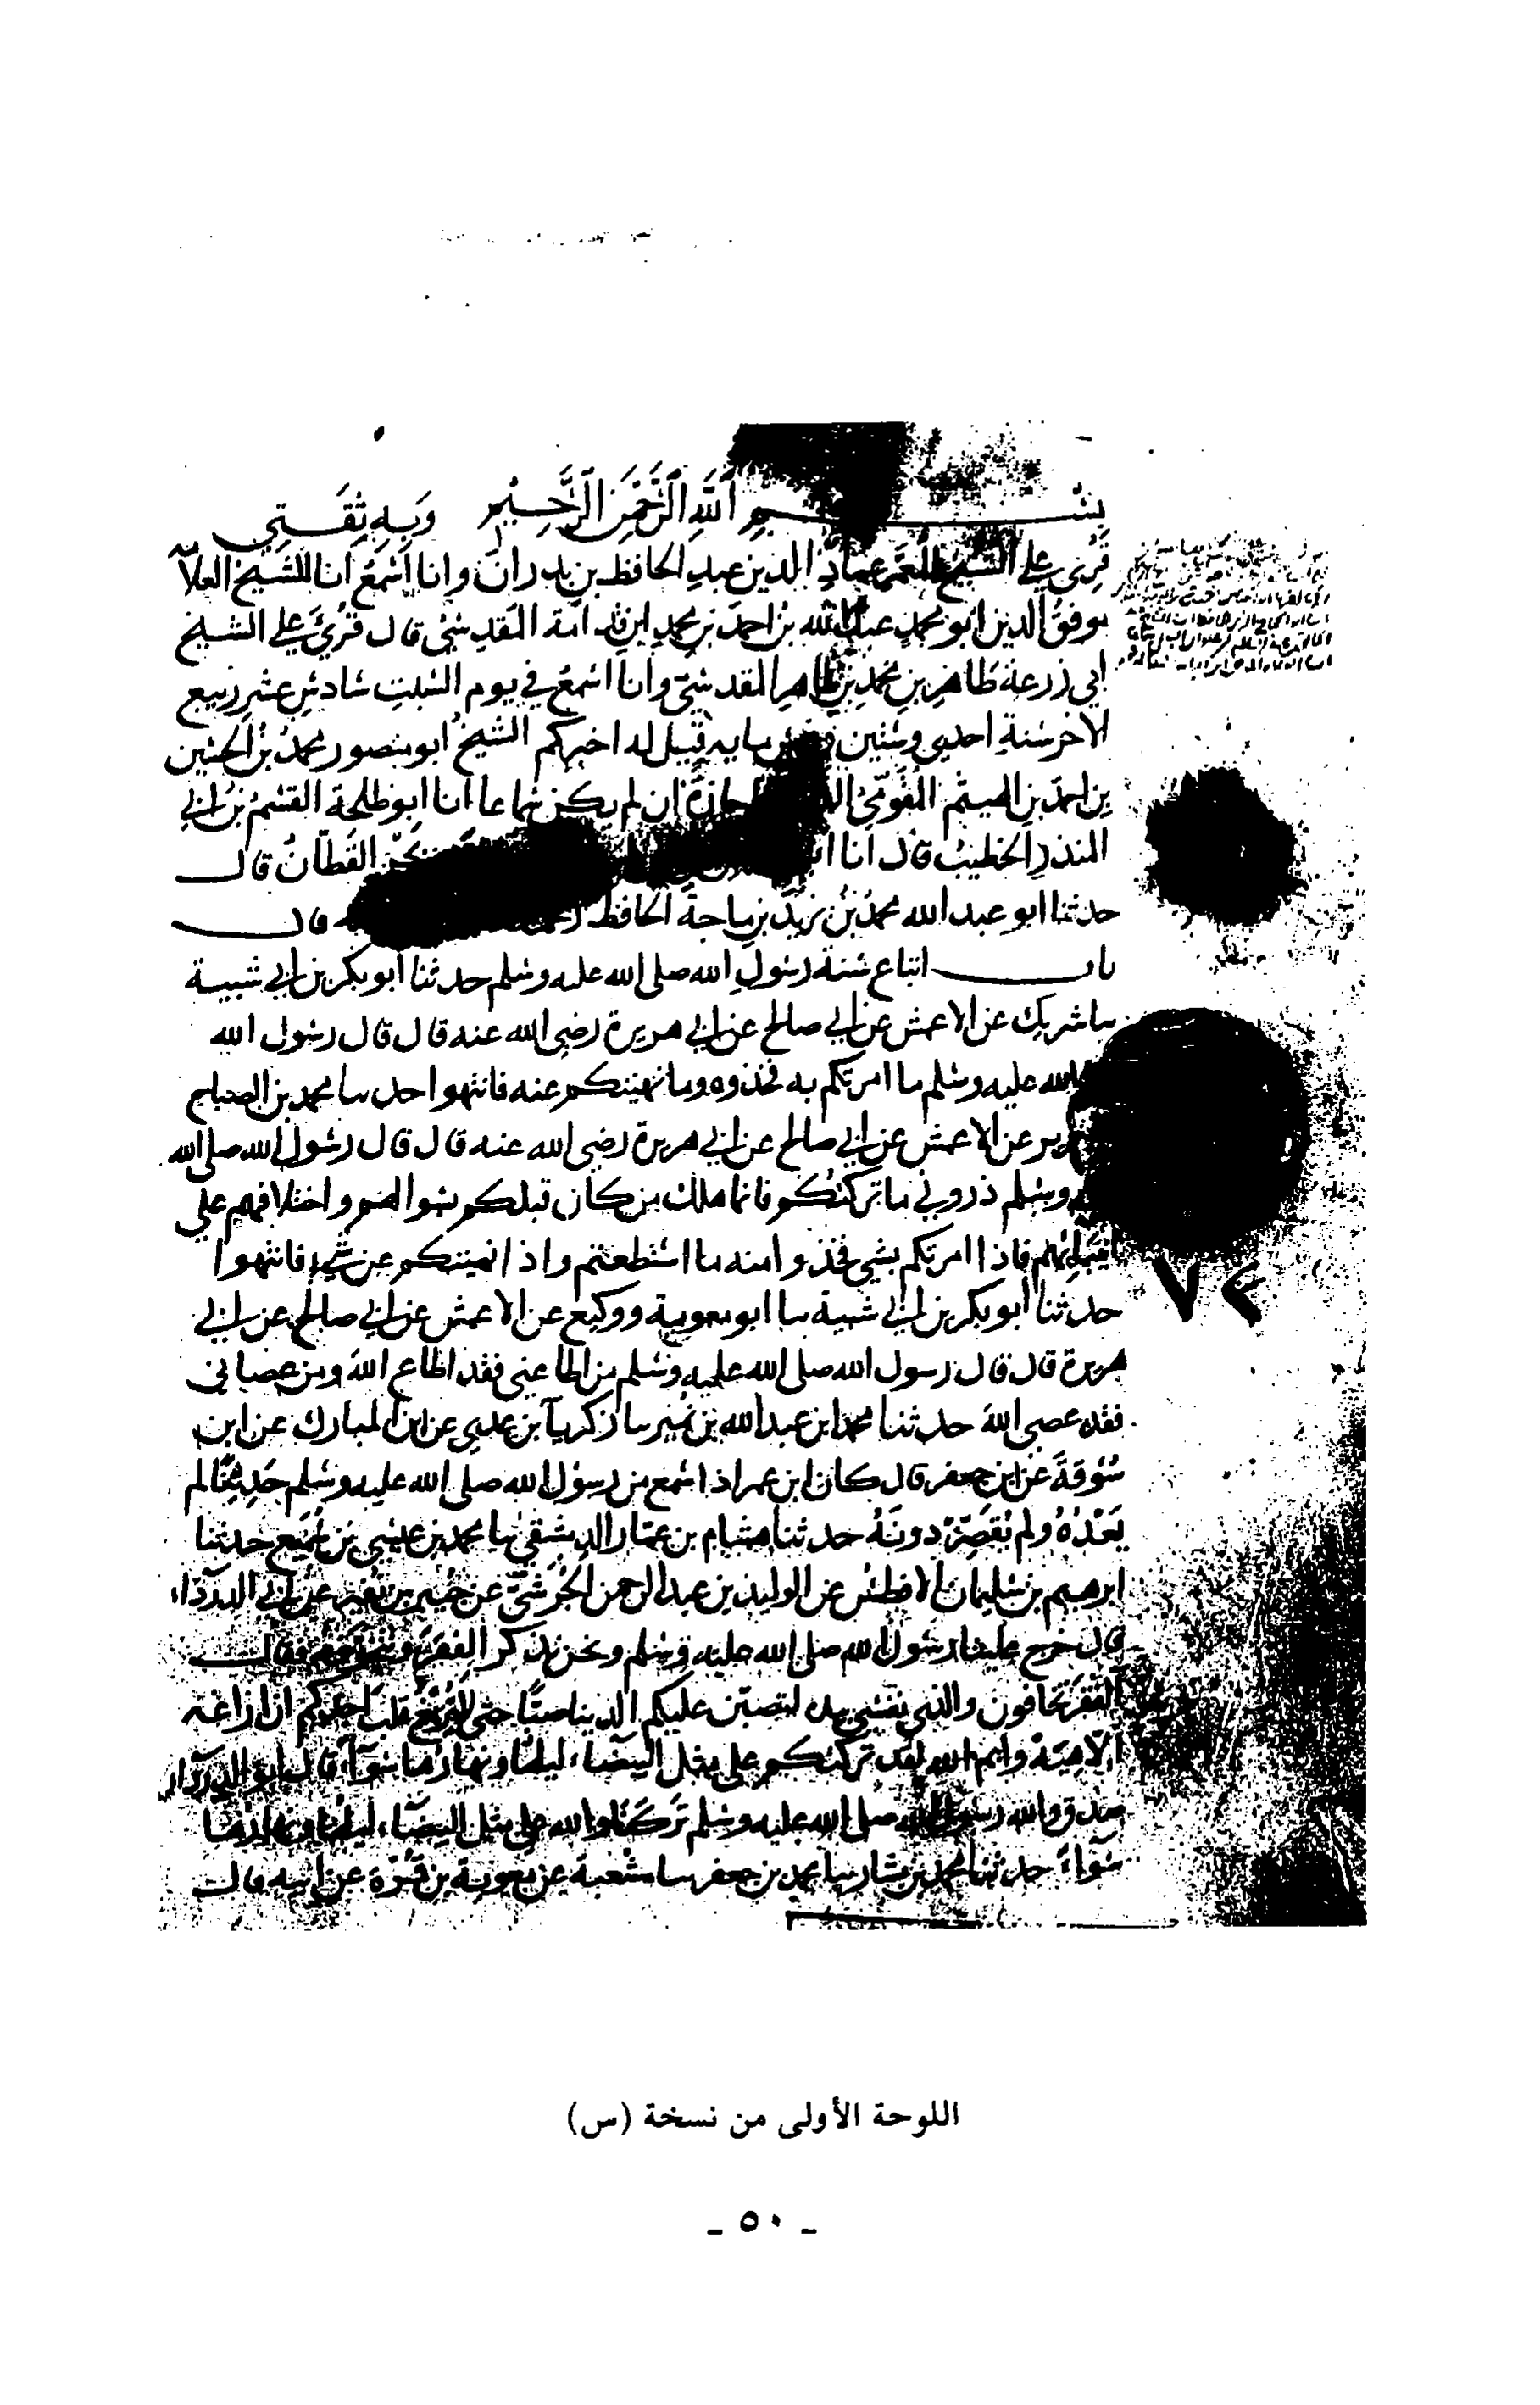 بسم الله الرحمن الرحيم وبه ثقتي
قرئ على الشيخ المعمر عماد الدين عبد الحافظ بن بدران وانا اسمع انا الشيخ العلا
موفق الدين ابو محمد عبد الله بن احمد بن محمد ابن قدامة المقدسي قال قرئ على الشيخ
ابي زرعة طاهر بن محمد بن طاهر المقدسي وانا اسمع في يوم السبت سادس عشر ربيع
الاخر سنة احدى وستين قيل له اخبركم الشيخ ابو منصور محمد بن الحسين
بن احمد بن الهيثم المقومي اجازة ان لم يكن سماعا انا ابو طلحة القسم بن ابي
المنذر الخطيب قال انا القطان قال
حدثنا ابو عبد الله محمد بن يزيد بن ماجة الحافظ قال
باب اتباع سنة رسول الله صلى الله عليه وسلم حدثنا ابو بكر بن ابي شيبة
سا شريك عن الاعمش عن ابي صالح عن ابي هريرة رضي الله عنه قال قال رسول الله
الله عليه وسلم ما امرتكم به فخذوه وما نهيتكم عنه فانتهوا حدسا محمد بن الصباح
عن الاعمش عن ابي صالح عن ابي هريرة رضي الله عنه قال قال رسول الله صلى الله
وسلم ذروني ما تركتكم فانما هلك من كان قبلكم بسوالهم واختلافهم على
انبيائهم فاذا امرتكم بشي فخذوا منه ما استطعتم واذا نهيتكم عن شيء فانتهوا
حدثنا ابو بكر بن ابي شيبة سا ابو معوية ووكيع عن الاعمش عن ابي صالح عن ابي
هريرة قال قال رسول الله صلى الله عليه وسلم من اطاعني فقد اطاع الله ومن عصاني
فقد عصى الله حدثنا محمد ابن عبد الله بن نمير سا زكريا بن عدي عن ابن المبارك عن ابن
سوقة عن ابن جعفر قال كان ابن عمر اذا سمع من رسول الله صلى الله عليه وسلم حديثا لم
يعده ولم يقصر دونه حدثنا هشام بن عمار الدمشقي سا محمد بن عيسى بن سميع حدثنا
ابرهيم بن سليمان الافطس عن الوليد بن عبد الرحمن الجرشي عن جبير بن نفير عن ابي الدرداء
قال خرج علينا رسول الله صلى الله عليه وسلم ونحن نذكر الفقر ونتخوفه فقال
الفقر تخافون والذي نفسي بيده لتصبن عليكم الدنيا صبا حتى لا يزيغ قلب احدكم ان ازاغه
الا هيه وايم الله لقد تركتكم على مثل البيضاء ليلها ونهارها سواء قال ابو الدرداء
صدق والله رسول الله صلى الله عليه وسلم تركنا والله على مثل البيضاء ليلها ونهارها
سواء حدثنا محمد بن بشار سا محمد بن جعفر سا شعبة عن معوية بن قرة عن ابيه قال
اللوحة الأولى من نسخة (س)
- ٥٠ -